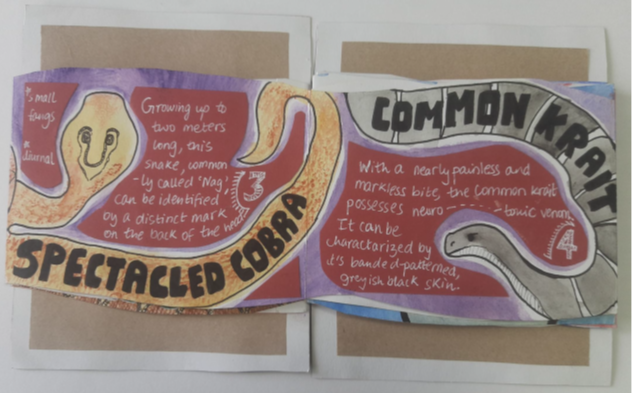 *small
fangs
*diurnal
Growing up to
two meters
long, this
snake, common
-ly called 'Nag'
can be identified
by a distinct mark
on the back of the head
3
SPECTACLED COBRA
COMMON KRAIT
With a nearly painless and
markless bite, the Common krait
possesses neuro-----toxic venom.
It can be
charactarized by
it's banded-patterned,
greyish black skin.
4